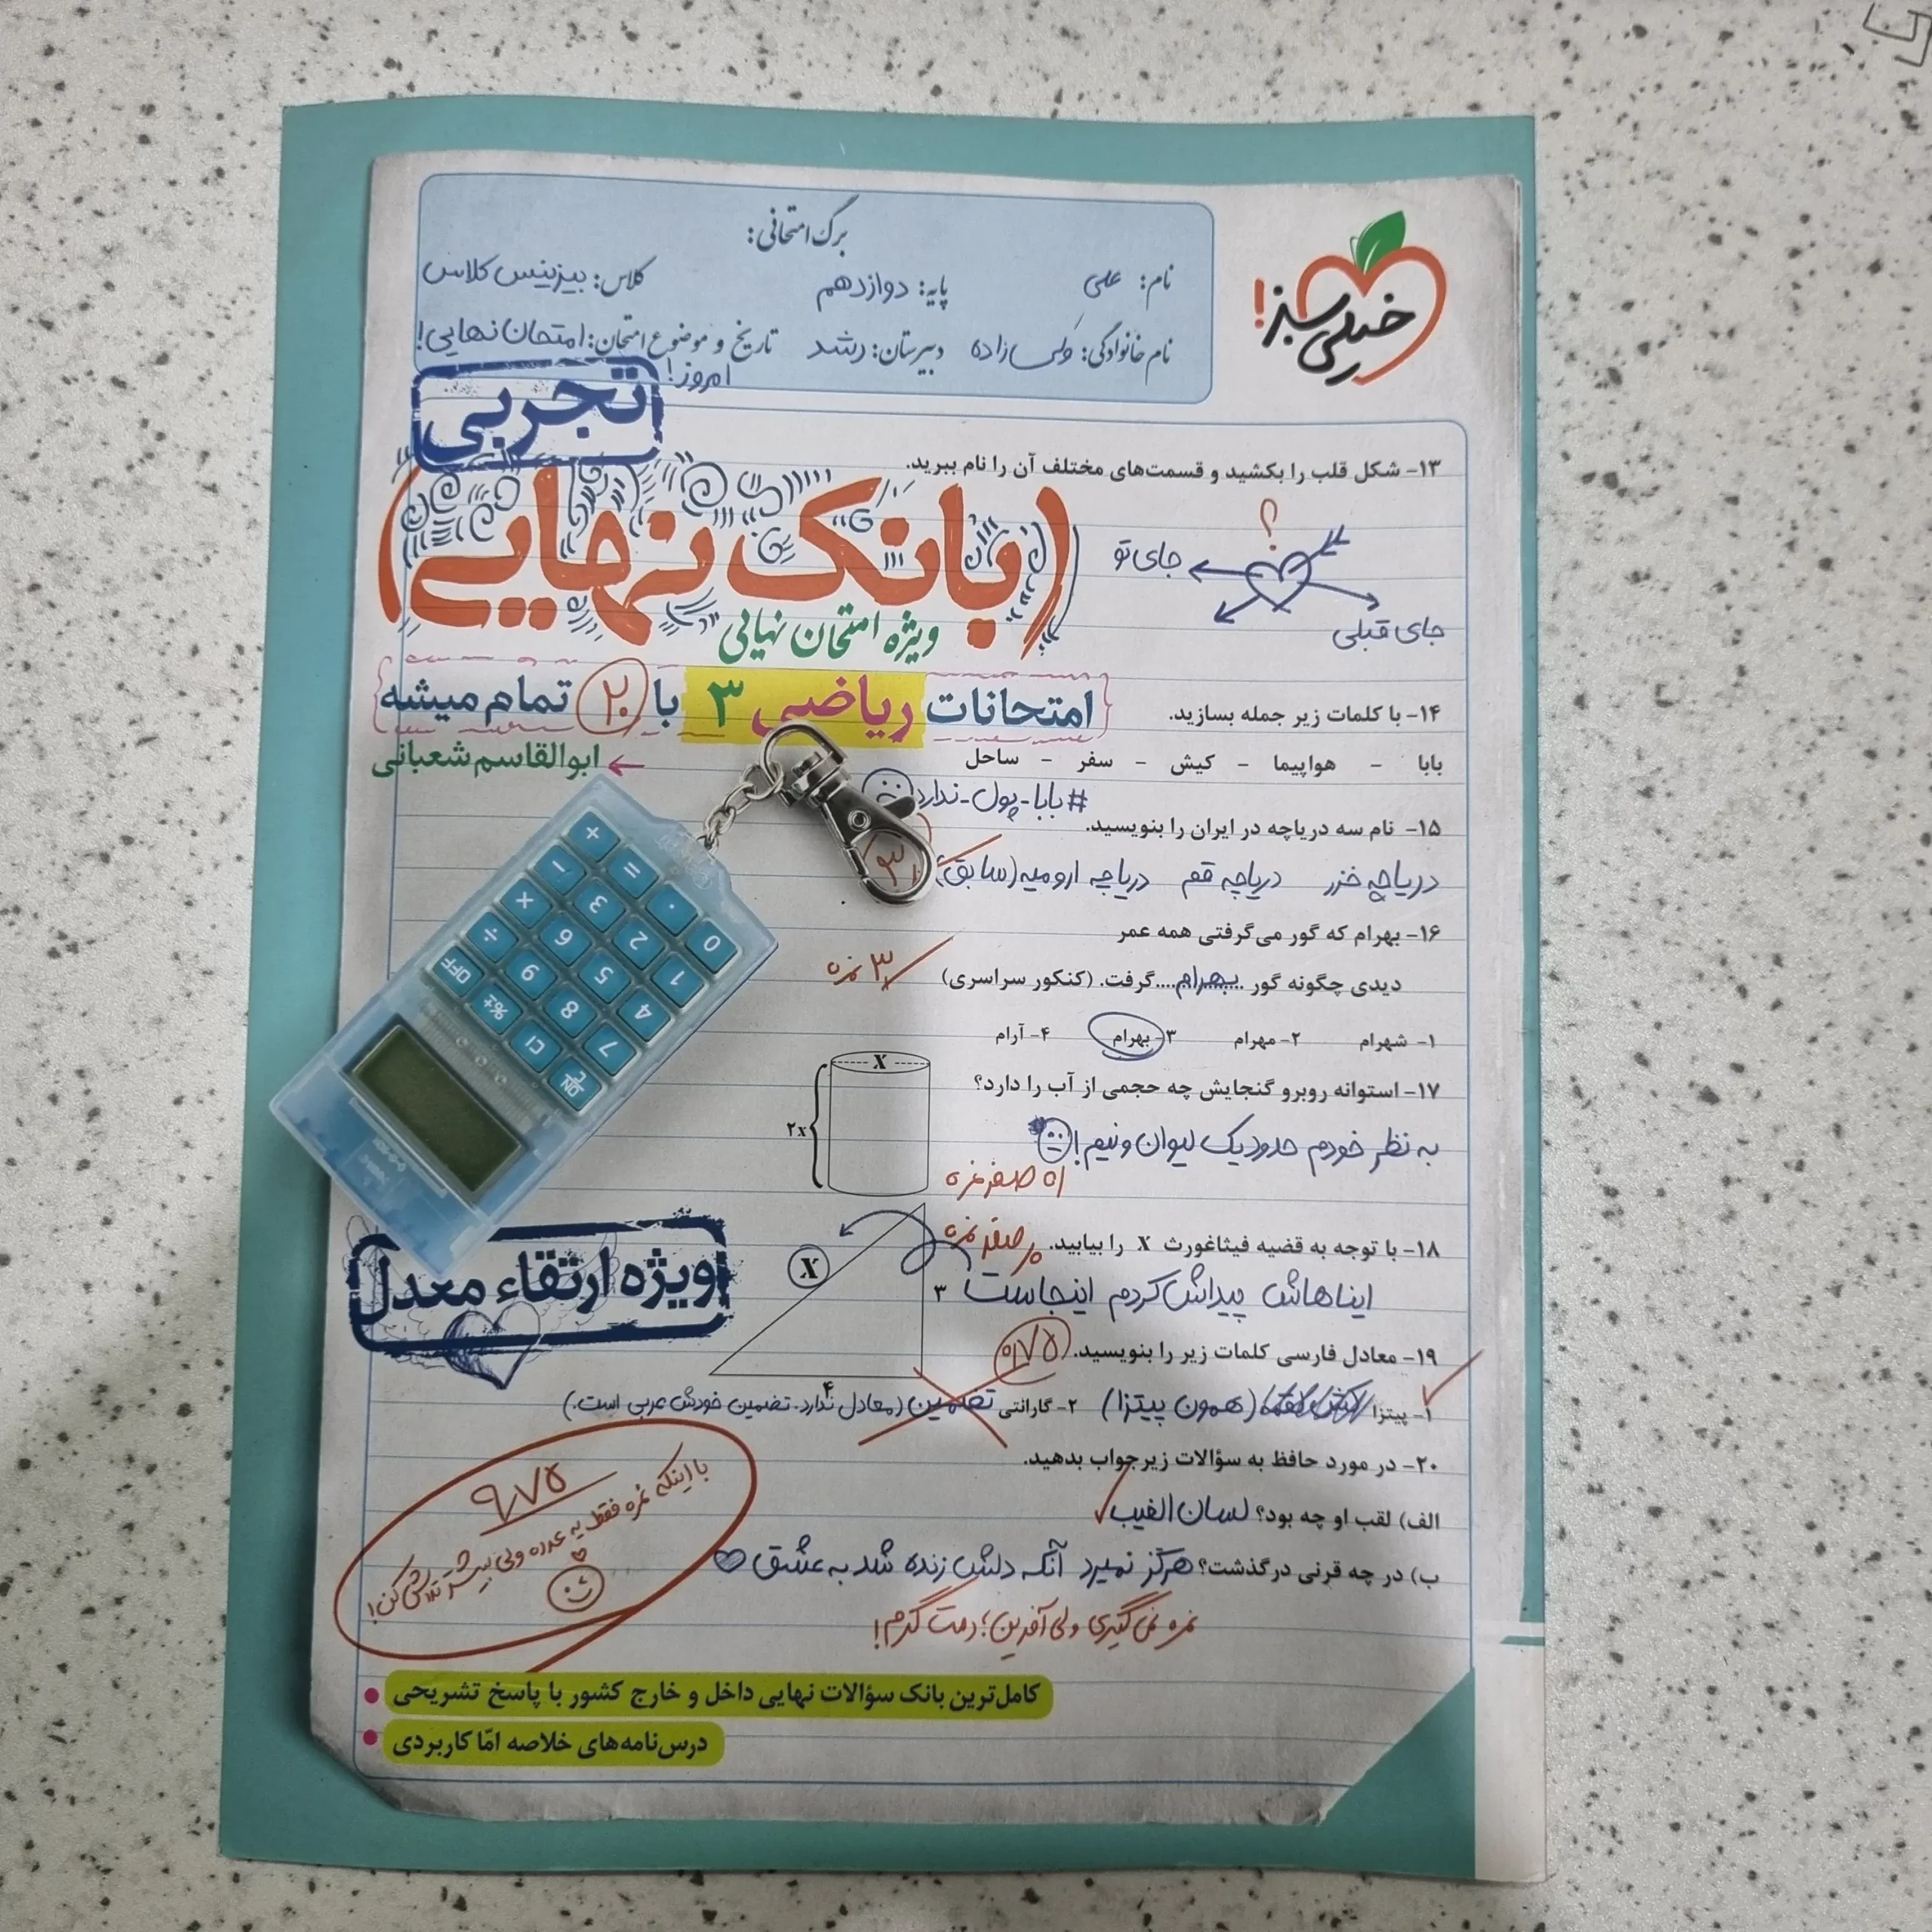 برگ امتحانی:
نام: علی پایه: دوازدهم کلاس: بیزینس کلاس
نام خانوادگی: ولی زاده دبیرستان: رشد تاریخ و موضوع امتحان: امتحان نهایی!
امروز!
خیلی سبز!
تجربی
۱۳- شکل قلب را بکشید و قسمت‌های مختلف آن را نام ببرید.
؟
جای تو
جای قبلی
(بانک نهایی)
ویژه امتحان نهایی
امتحانات ریاضی ۳ با ۲۰ تمام میشه
ابوالقاسم شعبانی
۱۴- با کلمات زیر جمله بسازید.
بابا - هواپیما - کیش - سفر - ساحل
#بابا-پول-ندارد
۱۵- نام سه دریاچه در ایران را بنویسید.
دریاچه خزر دریاچه قم دریاچه ارومیه (سابق)
۳
۱۶- بهرام که گور می‌گرفتی همه عمر
دیدی چگونه گور ....بهرام.... گرفت. (کنکور سراسری)
۳ نمره
۱- شهرام ۲- مهرام ۳- بهرام ۴- آرام
۱۷- استوانه روبرو گنجایش چه حجمی از آب را دارد؟
X
۲x
به نظر خودم حدود یک لیوان و نیم!
اه صفر نمره
۱۸- با توجه به قضیه فیثاغورث X را بیابید.
صفر نمره
ایناهاش پیداش کردم اینجاست
X
۳
۴
۱۹- معادل فارسی کلمات زیر را بنویسید.
۰/۷۵
۱- پیتزا (همون پیتزا) ۲- گارانتی تضمین (معادل ندارد. تضمین خودش عربی است.)
۲۰- در مورد حافظ به سؤالات زیر جواب بدهید.
الف) لقب او چه بود؟ لسان الغیب
ب) در چه قرنی درگذشت؟ هرگز نمیرد آنکه دلش زنده شد به عشق
نمره نمی‌گیری ولی آفرین؛ دمت گرم!
۹/۷۵
با اینکه نمره فقط یه عدده ولی بیشتر تلاش کن!
ویژه ارتقاء معدل
کامل‌ترین بانک سؤالات نهایی داخل و خارج کشور با پاسخ تشریحی
درس‌نامه‌های خلاصه امّا کاربردی
+ = . 0
− 3 2 1
× 6 5 4
÷ 9 8 7
OFF %± CI ON/C